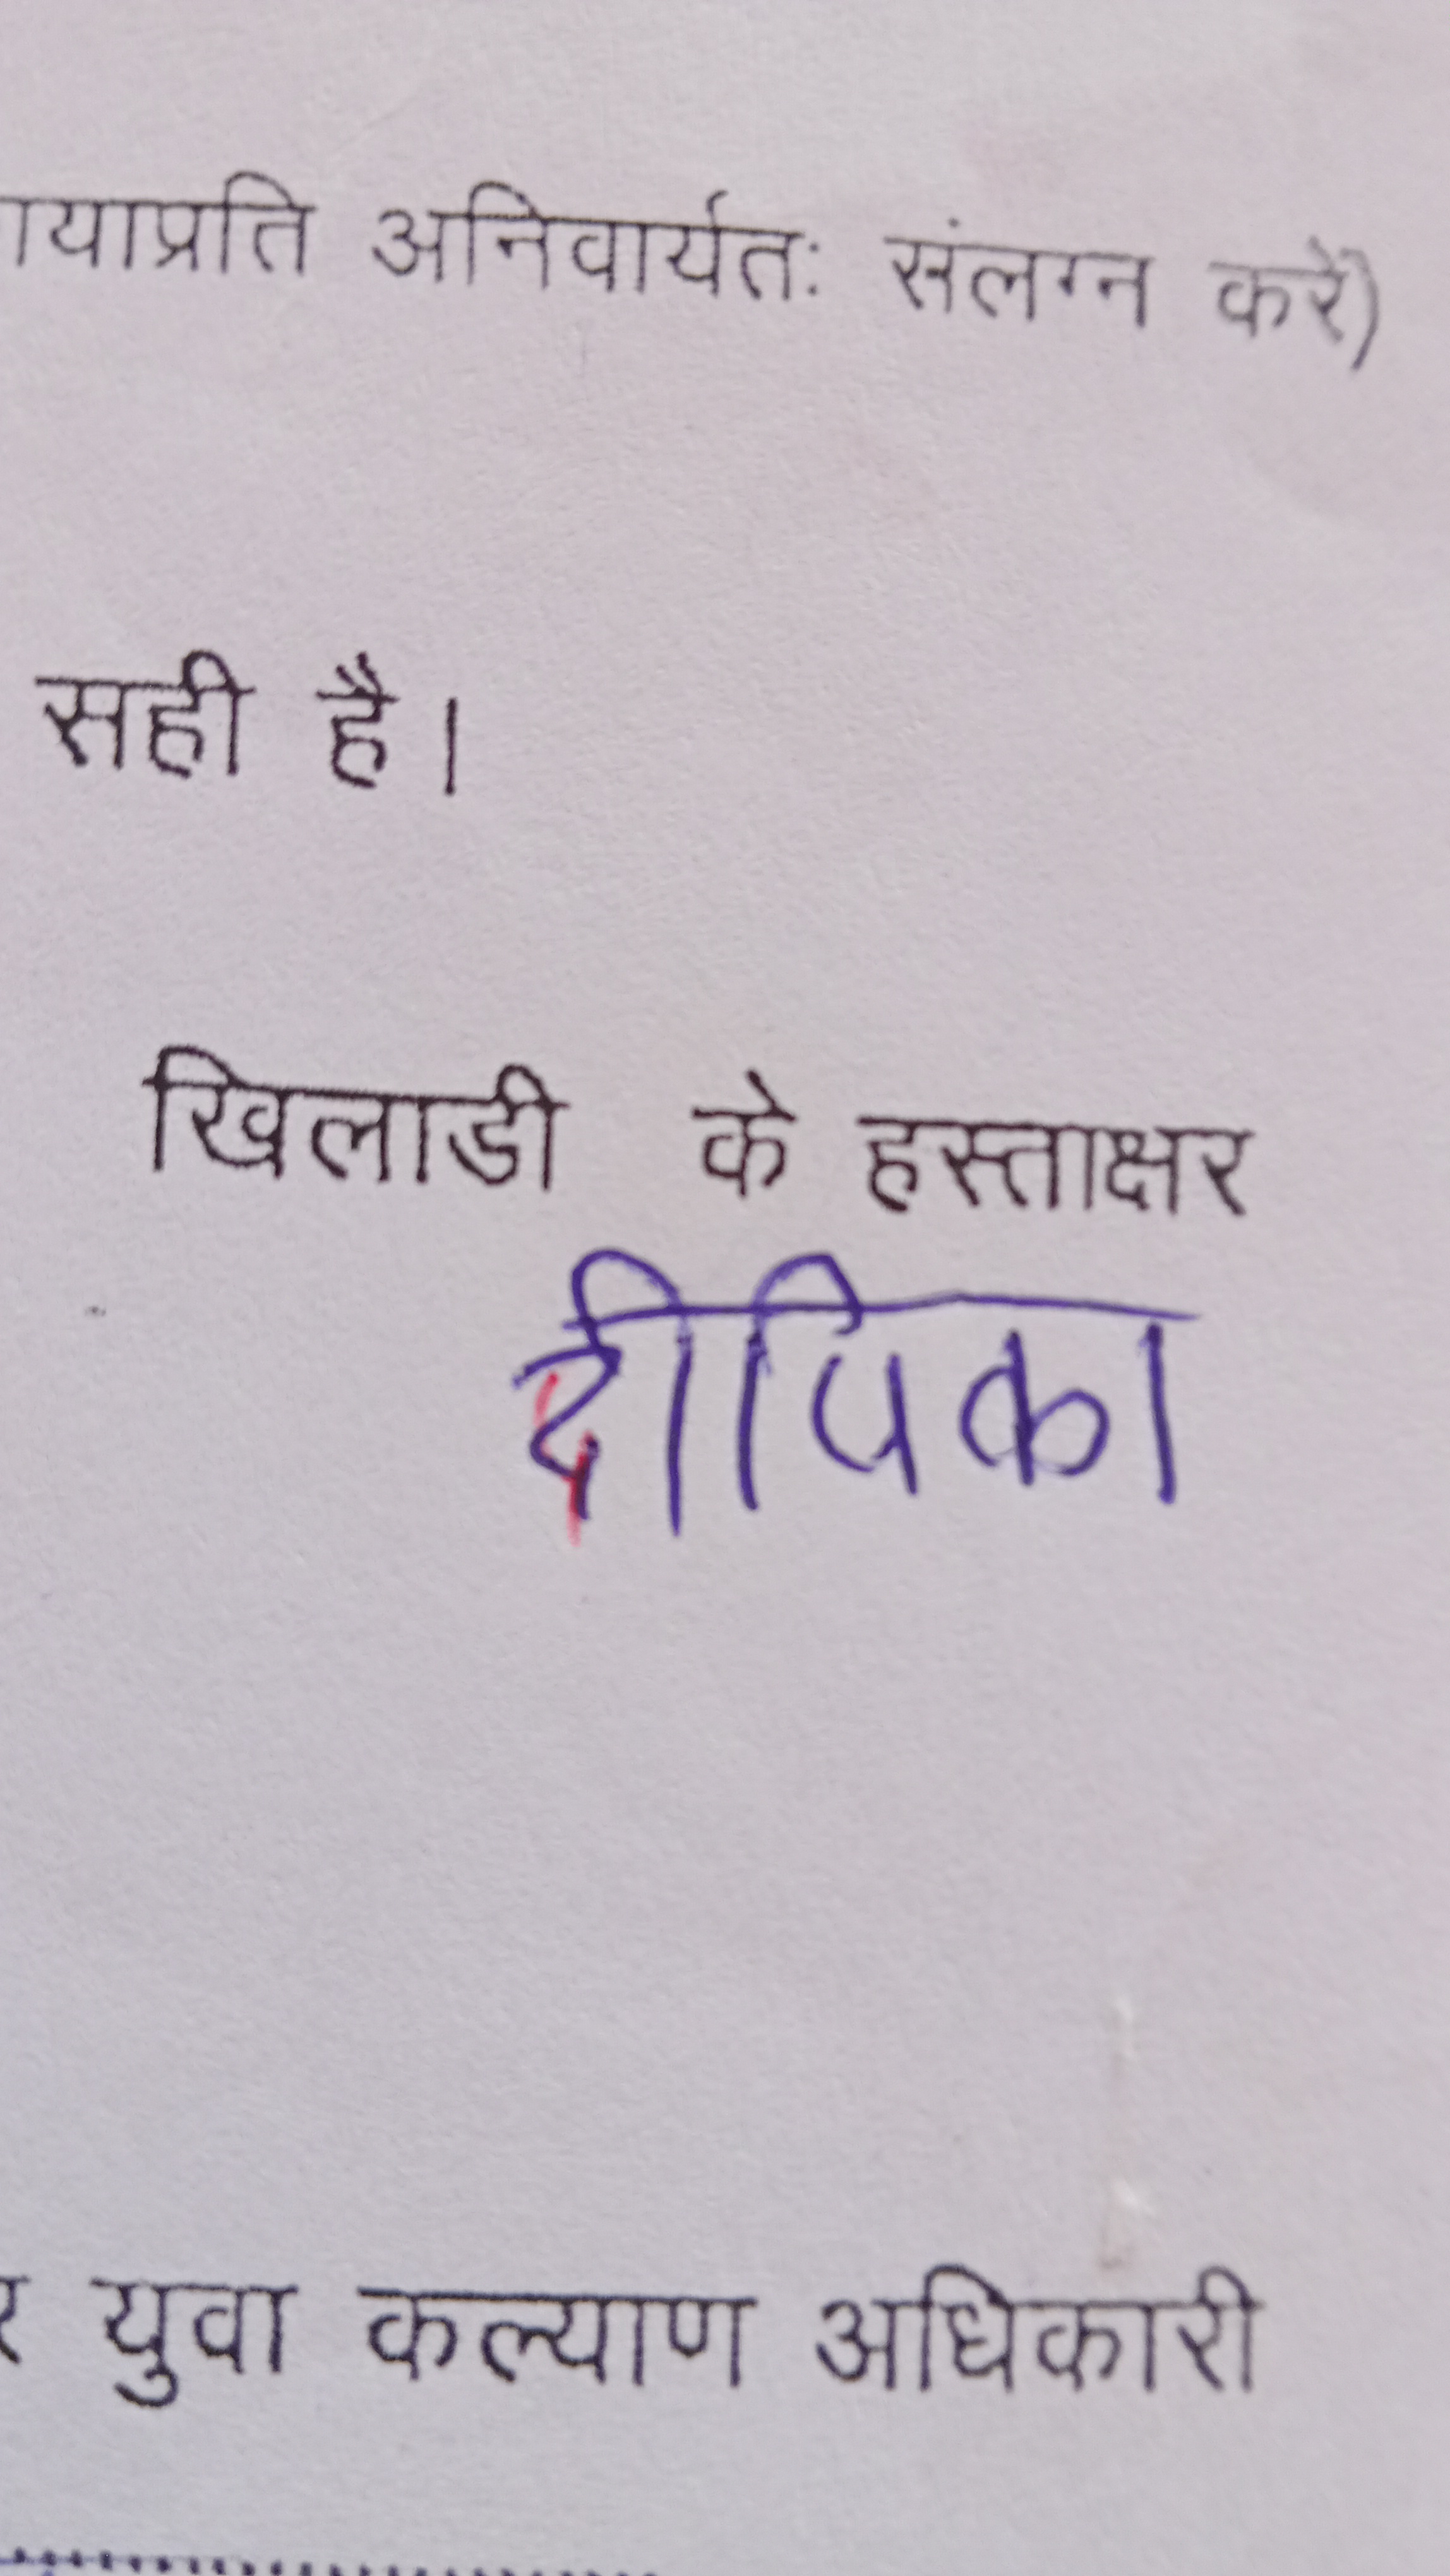 ायाप्रति अनिवार्यतः संलग्न करें)
सही है।
खिलाडी के हस्ताक्षर
दीपिका
र युवा कल्याण अधिकारी